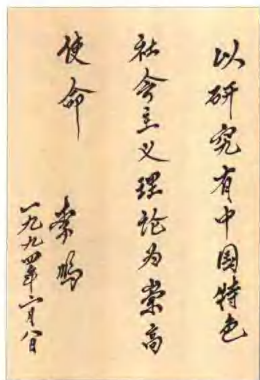 以研究有中国特色
社会主义理论为崇高
使命
荣鸿
一九九四年六月八日